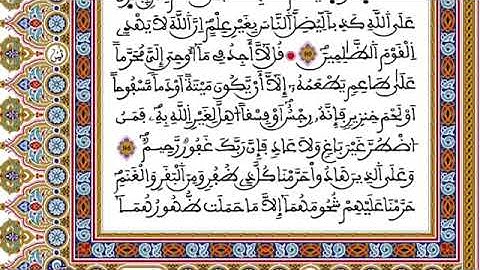 عَلَى اَ۬للَّهِ كَذِباٗ لِّيُضِلَّ اَ۬لنَّاسَ بِغَيْرِ عِلْمٍ اِنَّ اَ۬للَّهَ لَا يَهْدِے
اِ۬لْقَوْمَ اَ۬لظَّٰلِمِينَ قُل لَّآ أَجِدُ فِے مَآ أُوحِيَ إِلَيَّ مُحَرَّماً
عَلَىٰ طَاعِمٖ يَطْعَمُهُۥٓ إِلَّآ أَنْ يَّكُونَ مَيْتَةً اَوْ دَماٗ مَّسْفُوحاً
اَوْ لَحْمَ خِنزِيرٖ فَإِنَّهُۥ رِجْسٌ اَوْ فِسْقاً اُهِلَّ لِغَيْرِ اِ۬للَّهِ بِهِۦ فَمَنُ
اُ۟ضْطُرَّ غَيْرَ بَاغٖ وَلَا عَادٖ فَإِنَّ رَبَّكَ غَفُورٞ رَّحِيمٞ
وَعَلَى اَ۬لذِينَ هَادُواْ حَرَّمْنَا كُلَّ ذِے ظُفُرٖ وَمِنَ اَ۬لْبَقَرِ وَالْغَنَمِ
حَرَّمْنَا عَلَيْهِمْ شُحُومَهُمَآ إِلَّا مَا حَمَلَتْ ظُهُورُهُمَآ